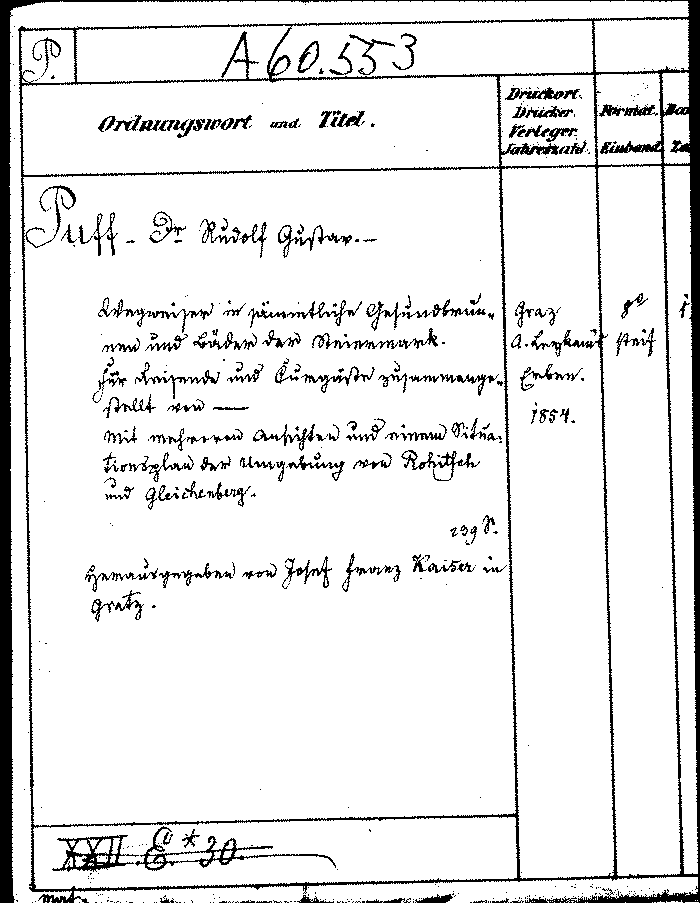 P.
A 60.553
Ordnungswort und Titel.
Druckort.
Drucker.
Verleger.
Jahreszahl.
Format.
Einband.
Puff - Dr Rudolf Gustav.-
Wegweiser in sämmtliche Gesundbrun-
nen und Bäder der Steiermark.
Für Reisende und Curgäste zusammenge-
stellt von —
Mit mehreren Ansichten und einem Situa-
tionsplan der Umgebung von Rohitsch
und Gleichenberg.
239 S.
Herausgegeben von Josef Franz Kaiser in
Gratz.
Graz
A. Leykam's
Erben.
1854.
8°
steif
XXII. E.* 30.